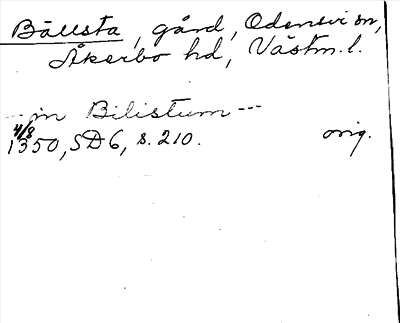 Bällsta, gård, Odensvi sn,
Åkerbo hd, Västm. l.
--- in Bilistum ---
4/8
1350, SD 6, s. 210. orig.